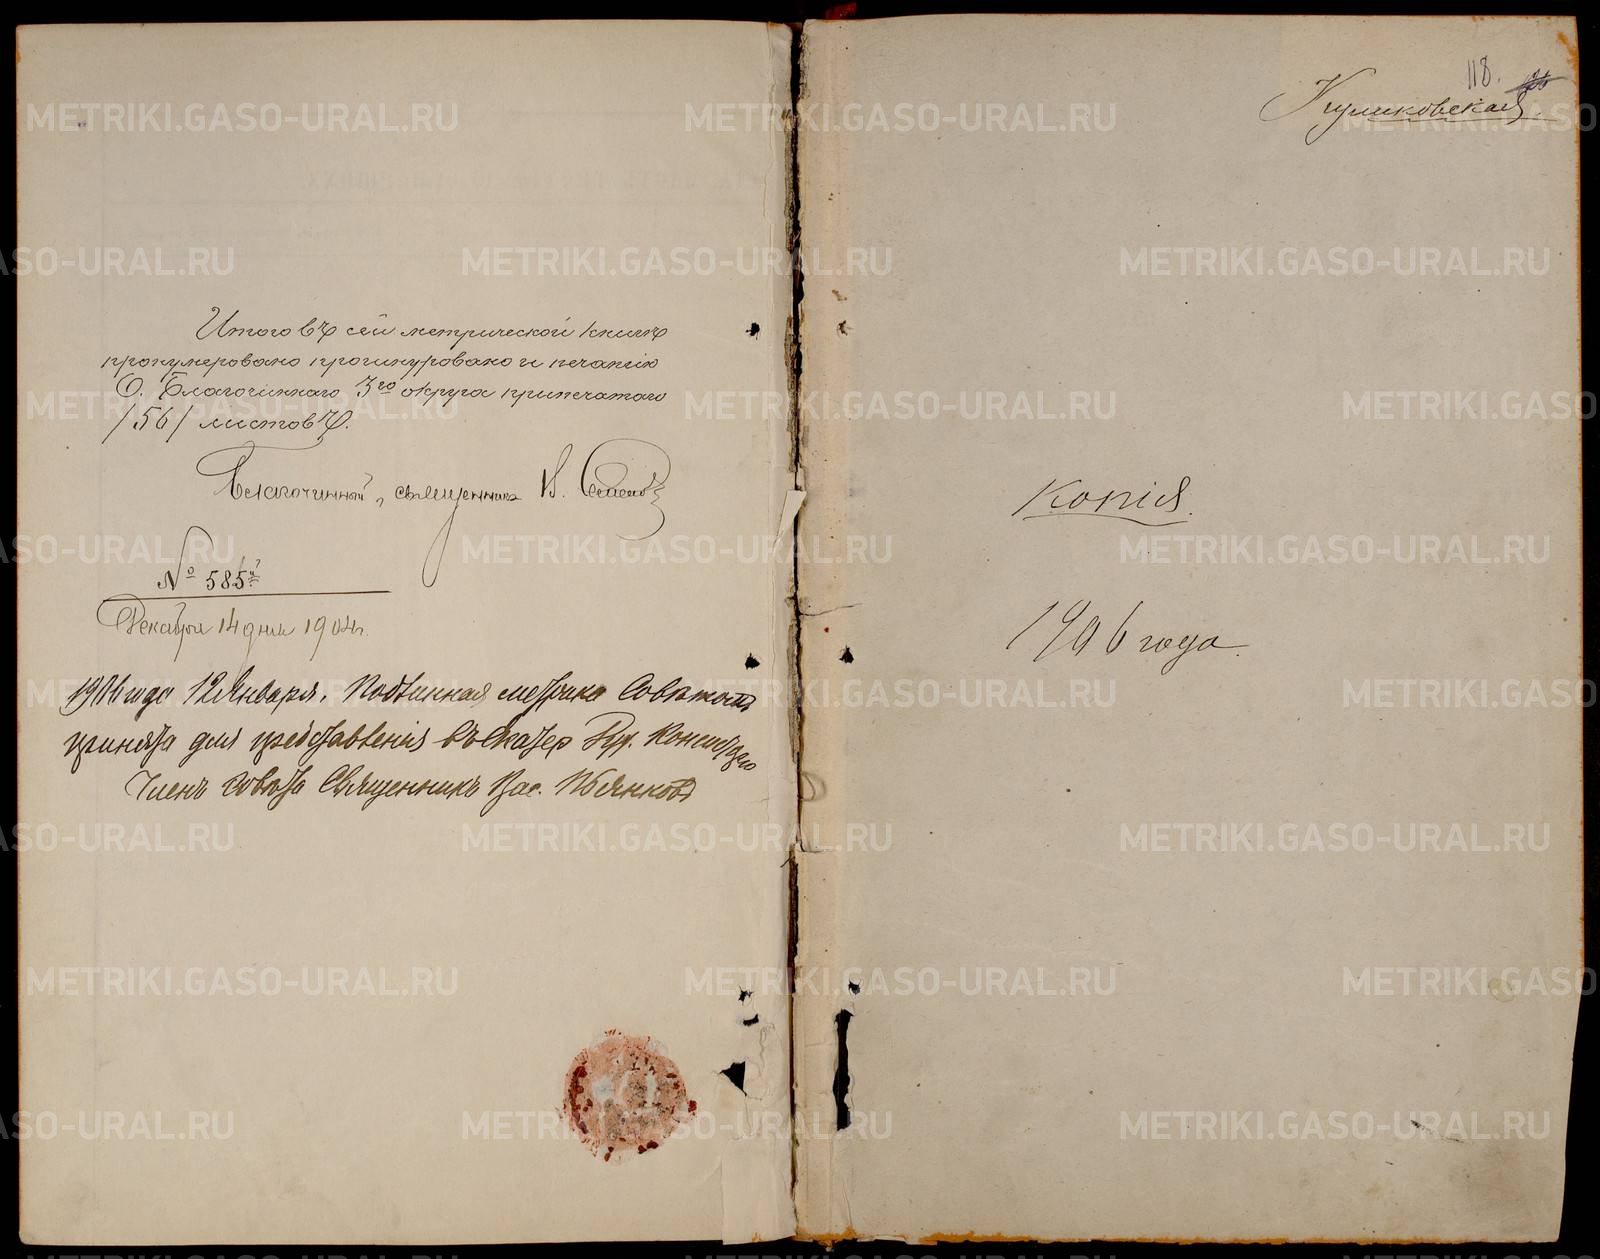 Итого въ сей метрической книгѣ
пронумеровано прошнуровано и печатію
О. Благочиннаго 3го округа припечатано
/56/ листовъ.
Благочинный, священникъ В.
№ 585й
Декабря 14 дня 1904 г.
1906 года 12 Января. Подлинная метрика Совѣтомъ
принята для представленія въ Екатер. Дух. Консисторію
Членъ Совѣта Священникъ Вас.
118.
Куликовская.
Копія.
1906 года.
METRIKI.GASO-URAL.RU